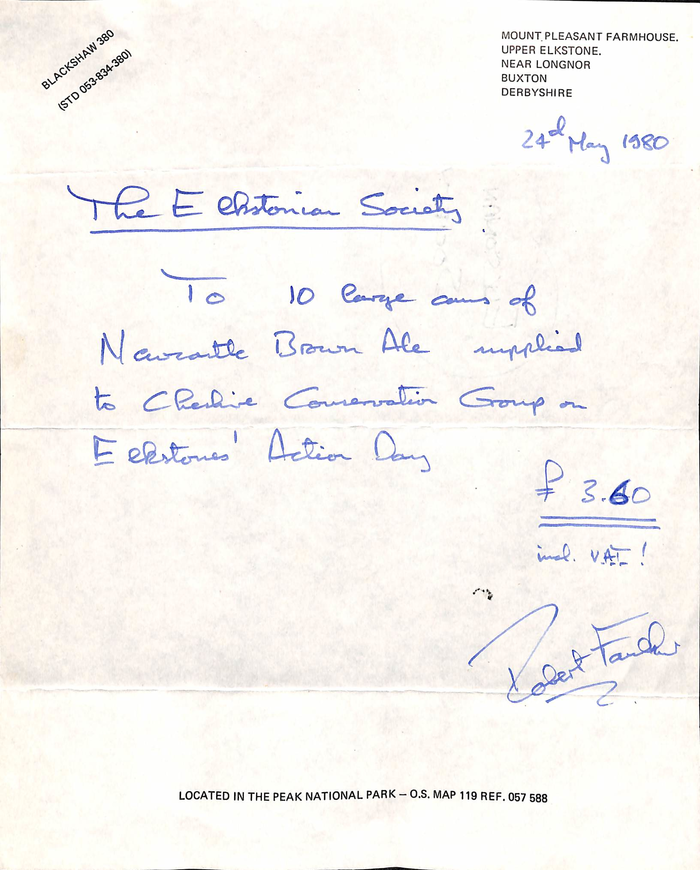 BLACKSHAW 380
(STD 053-834-380)
MOUNT PLEASANT FARMHOUSE.
UPPER ELKSTONE.
NEAR LONGNOR
BUXTON
DERBYSHIRE
24d May 1980
The Elkstonian Society
To 10 large cans of
Newcastle Brown Ale supplied
to Cheshire Conservation Group on
Elkstones' Action Day
£ 3.60
incl. VAT!
Robert
LOCATED IN THE PEAK NATIONAL PARK – O.S. MAP 119 REF. 057 588